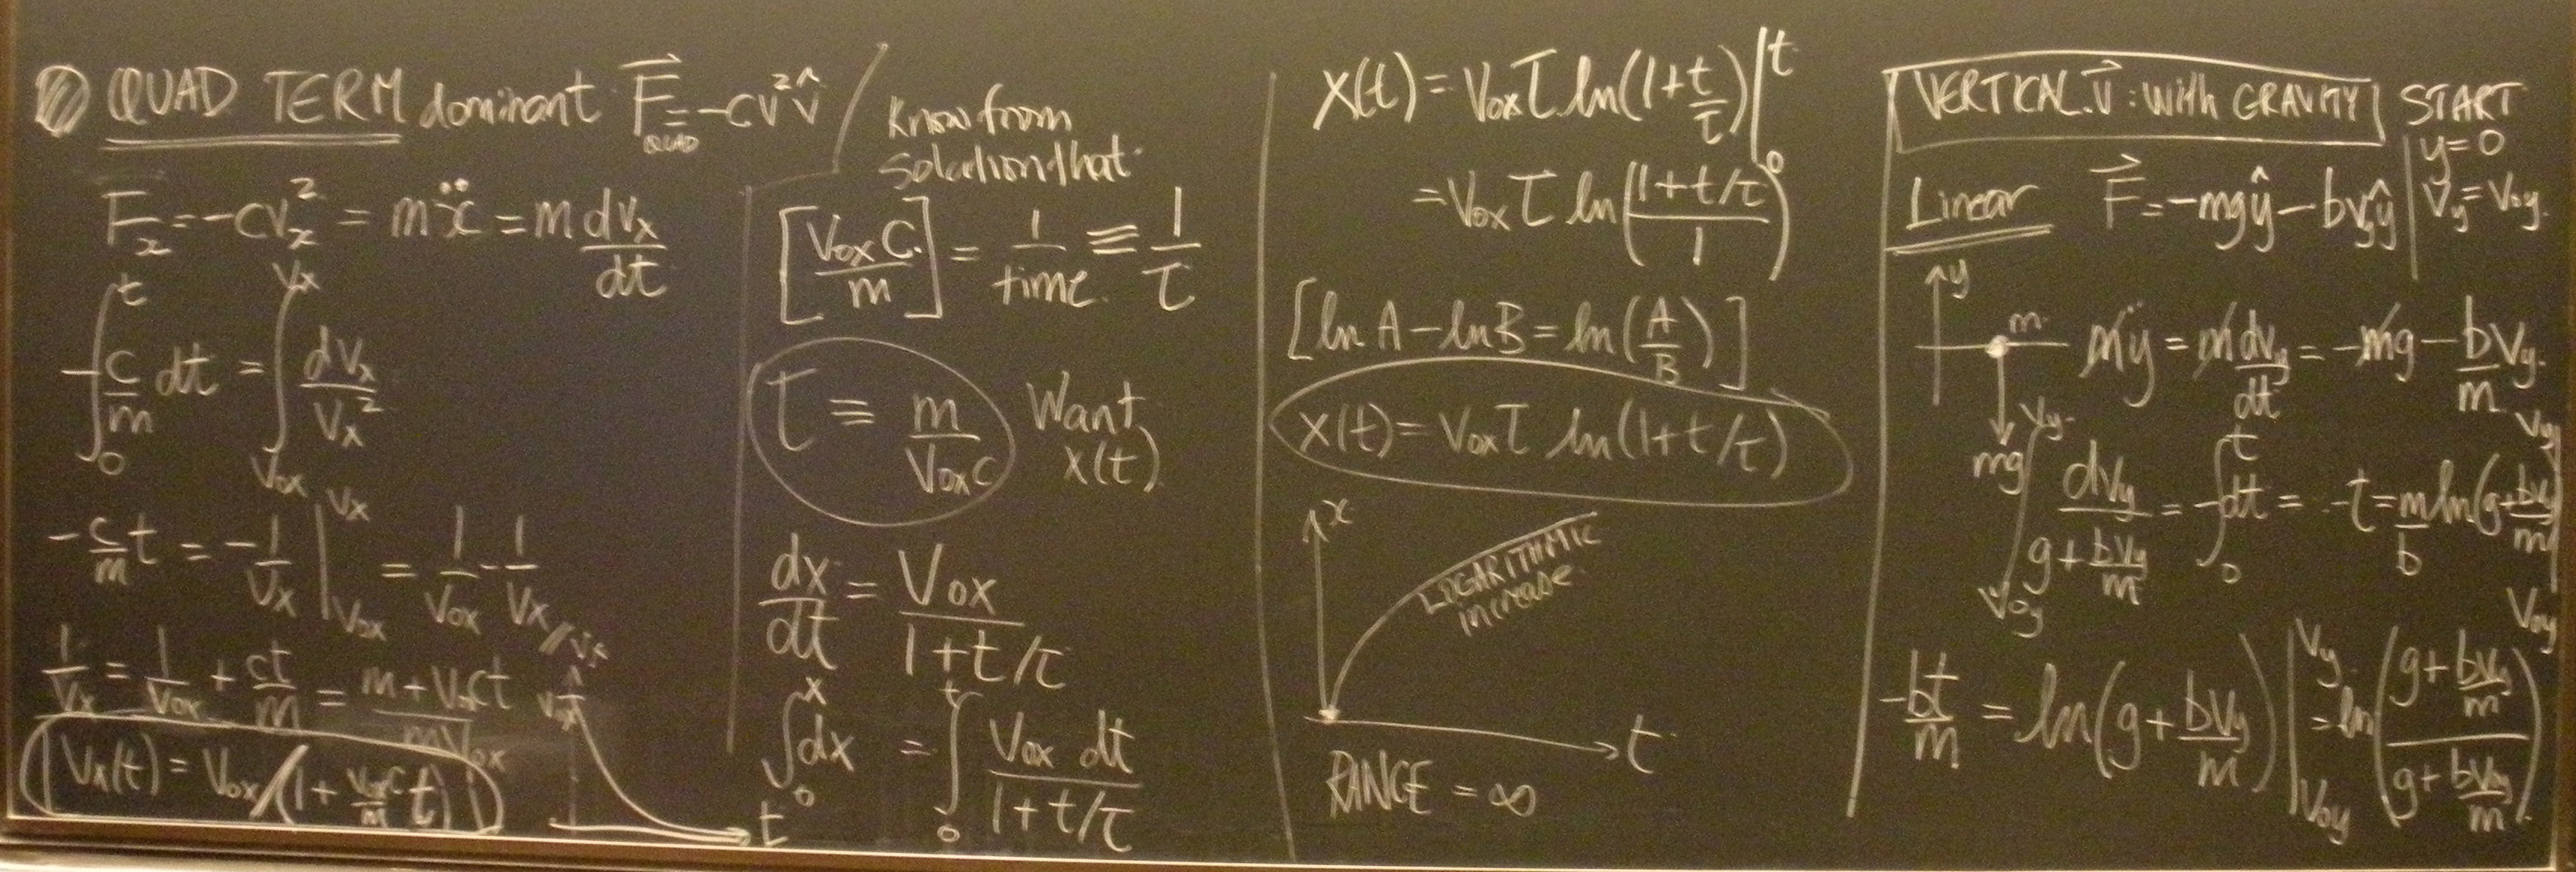 QUAD TERM dominant F⃗_QUAD = -cv²v̂
F_x = -cv_x² = mẍ = m dv_x/dt
-∫₀ᵗ c/m dt = ∫_{v_ox}^{v_x} dv_x/v_x²
-c/m t = -1/v_x |_{v_ox}^{v_x} = 1/v_ox - 1/v_x
1/v_x = 1/v_ox + ct/m = (m + v_ox ct)/(m v_ox)
v_x(t) = v_ox/(1 + v_ox c/m t)
v_x
v_ox
t
Know from
solution that
[v_ox c/m] = 1/time ≡ 1/τ
τ ≡ m/(v_ox c) Want
x(t)
dx/dt = v_ox/(1+t/τ)
∫₀ˣ dx = ∫₀ᵗ v_ox dt/(1+t/τ)
x(t) = v_ox τ ln(1+t/τ)|₀ᵗ
= v_ox τ ln((1+t/τ)/1)
[ln A - ln B = ln(A/B)]
x(t) = v_ox τ ln(1+t/τ)
x
LOGARITHMIC
increase
t
RANGE = ∞
VERTICAL v⃗: with GRAVITY
START
y=0
v_y = v_oy
Linear F⃗ = -mgŷ - bv_y ŷ
y
m
mg
mÿ = m dv_y/dt = -mg - b/m v_y
∫_{v_oy}^{v_y} dv_y/(g + bv_y/m) = -∫₀ᵗ dt = -t = m/b ln(g + bv_y/m)|_{v_oy}^{v_y}
-bt/m = ln(g + bv_y/m)|_{v_oy}^{v_y} = ln((g + bv_y/m)/(g + bv_oy/m))